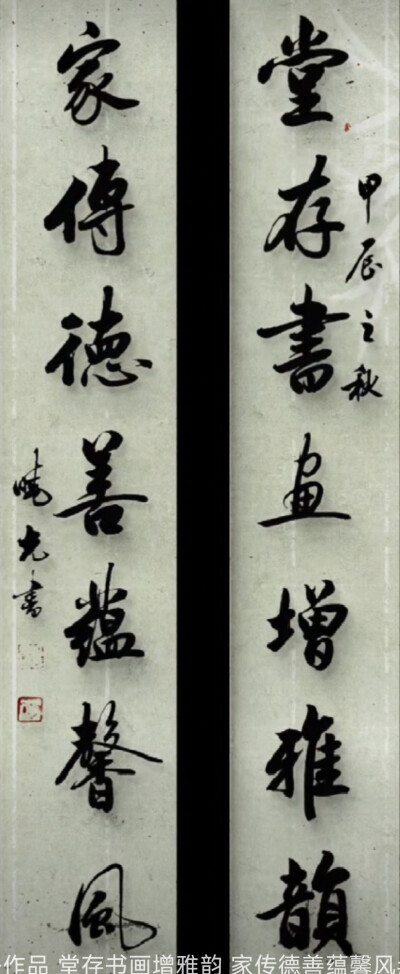 堂存書畫增雅韻
甲辰之秋
家傳德善蘊馨風
曉光書
作品 堂存书画增雅韵 家传德善蕴馨风